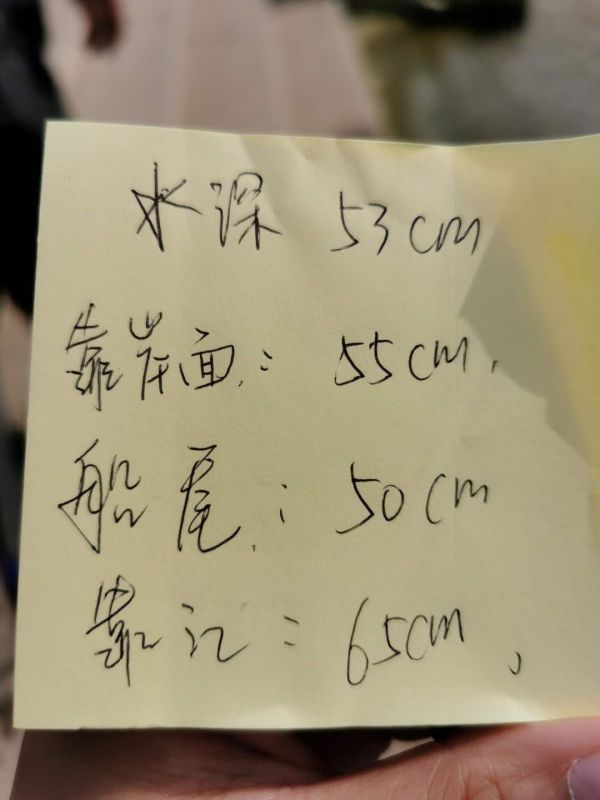 水深 53cm
靠岸面: 55cm.
船尾: 50cm
靠江: 65cm,